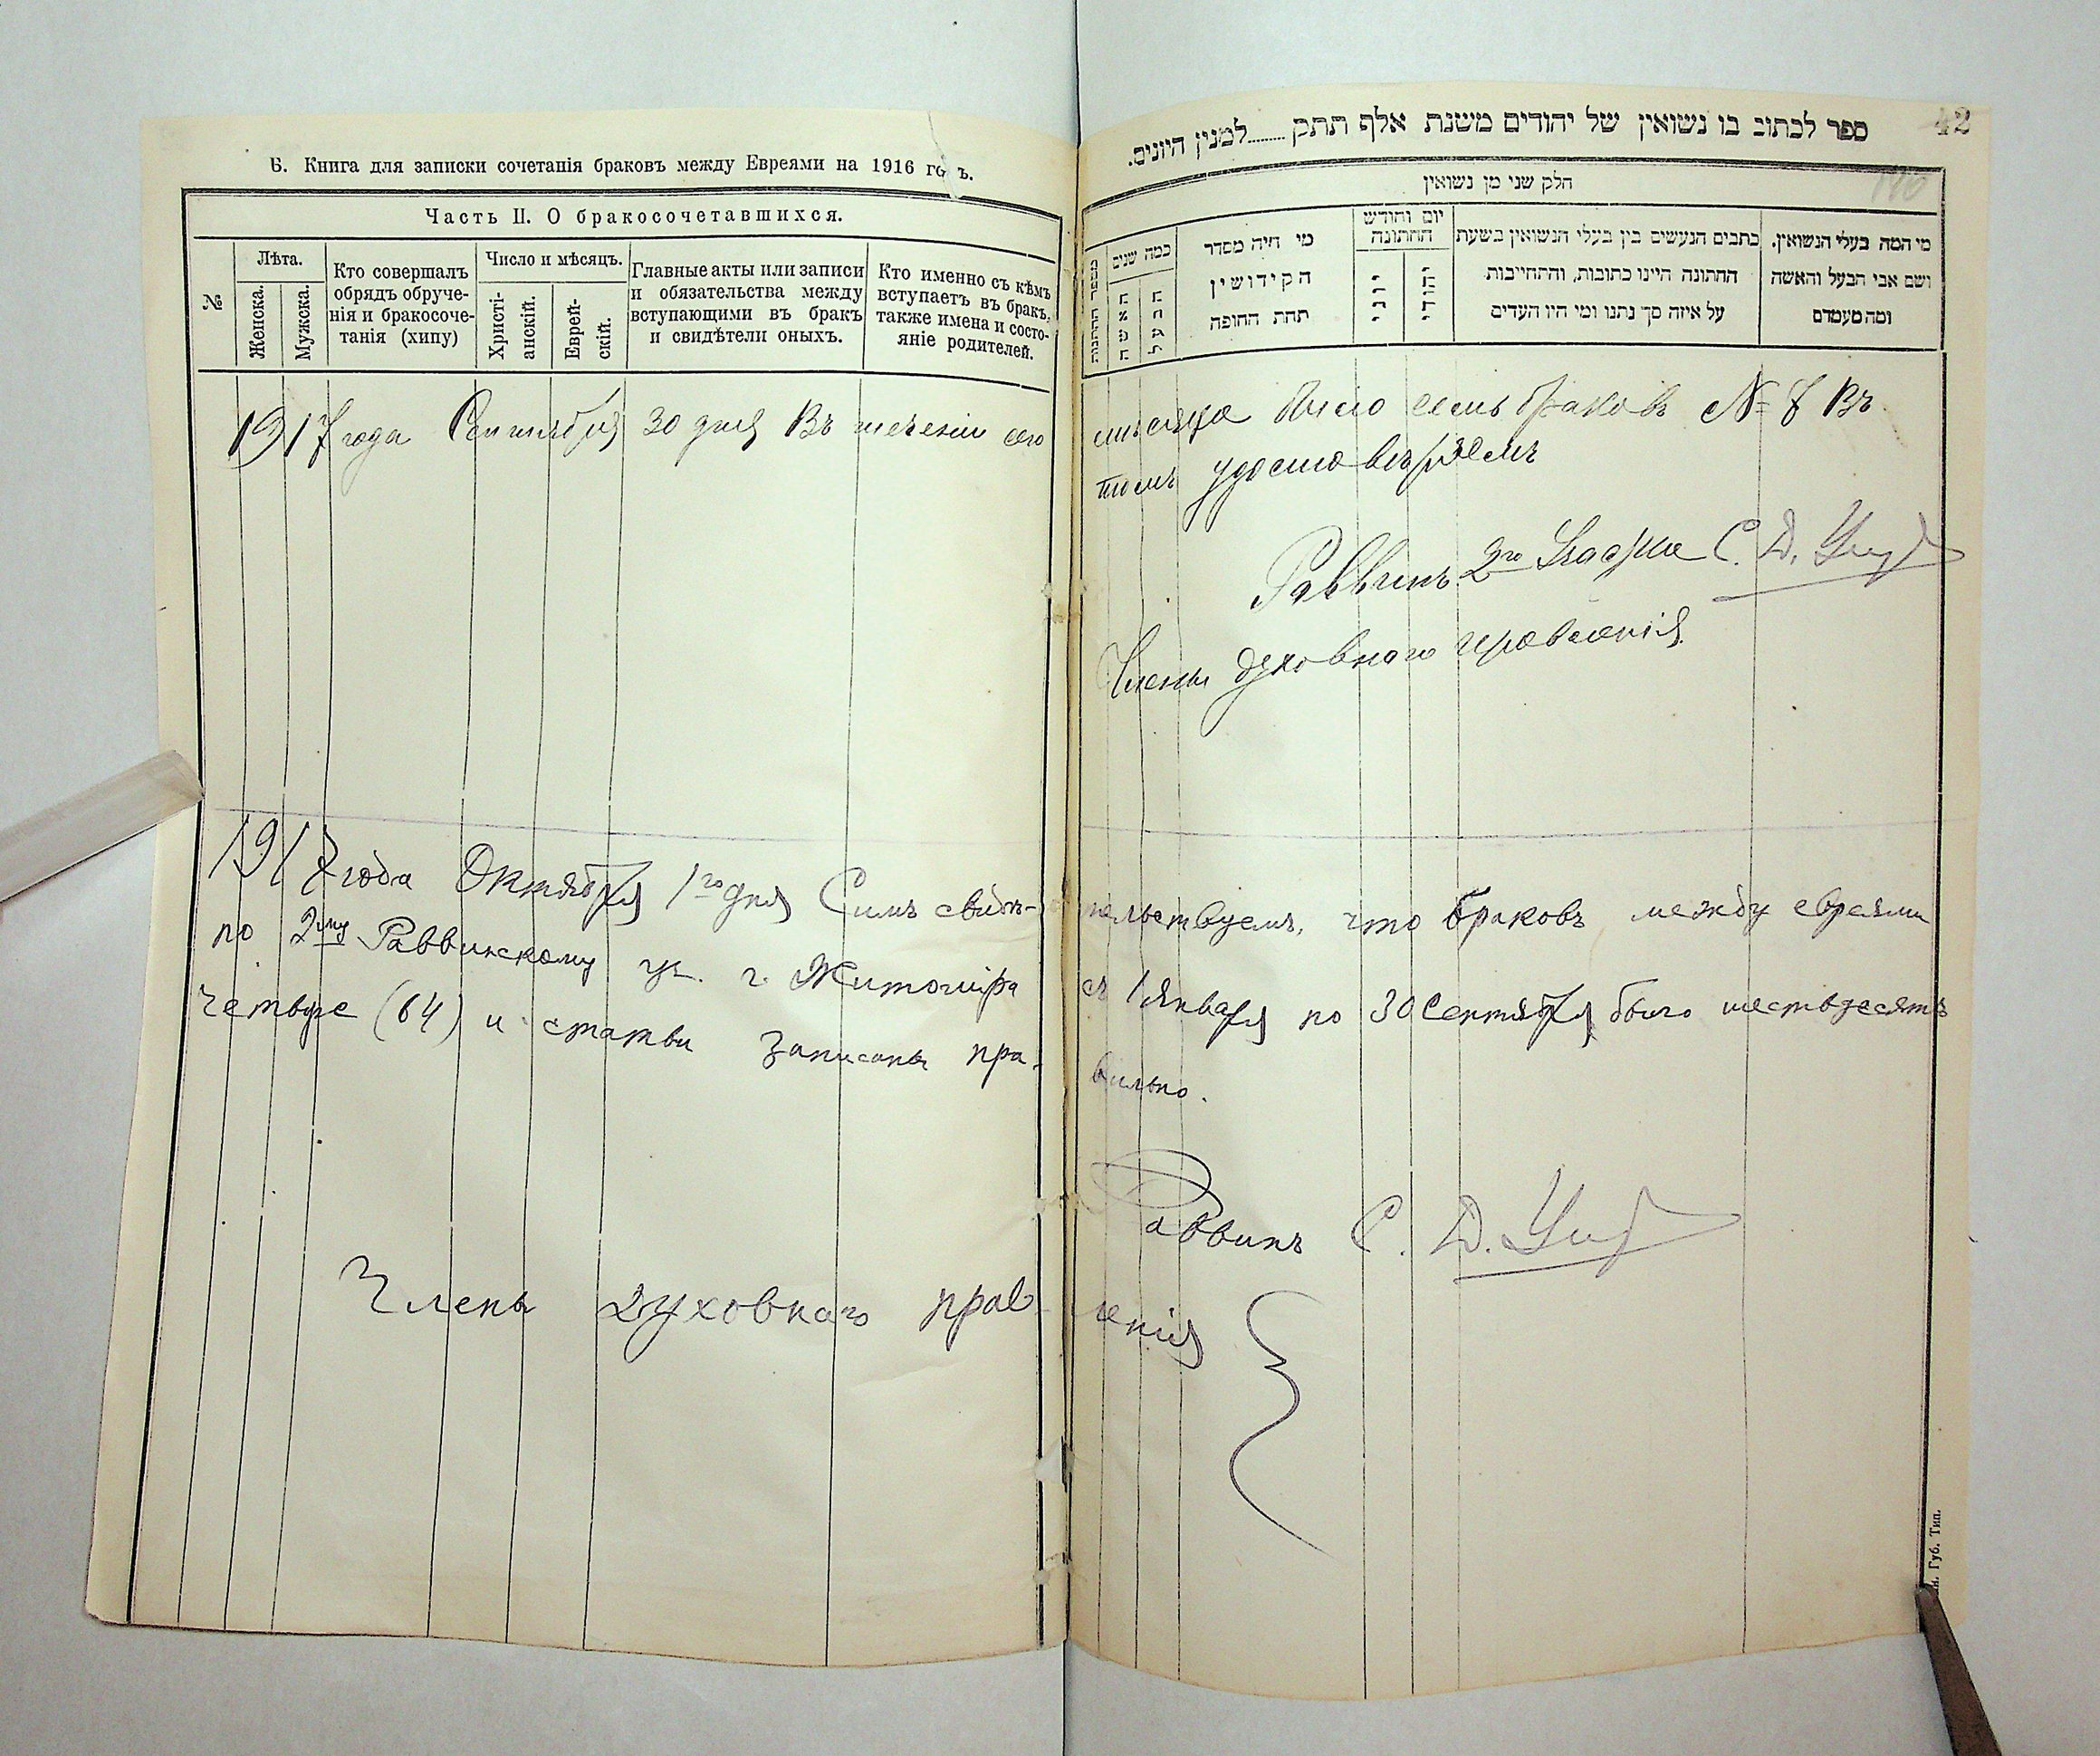 Б. Книга для записки сочетанія браковъ между Евреями на 1916 годъ.
Часть II. О бракосочетавшихся.
№
Лѣта.
Женска.
Мужска.
Кто совершалъ
обрядъ обруче-
нія и бракосоче-
танія (хипу)
Число и мѣсяцъ.
Христі-
анскій.
Еврей-
скій.
Главные акты или записи
и обязательства между
вступающими въ бракъ
и свидѣтели оныхъ.
Кто именно съ кѣмъ
вступаетъ въ бракъ,
также имена и состо-
яніе родителей.
42
ספר לכתוב בו נשואין של יהודים משנת אלף תתק........למנין היונים.
חלק שני מן נשואין
מספר החתונות
כמה שנים
האשה
הבעל
מי היה מסדר
הקידושין
תחת החופה
יום וחודש
החתונה
יוני
יהודי
כתבים הנעשים בין בעלי הנשואין בשעת
החתונה היינו כתובות, והתחייבות
על איזה סך נתנו ומי היו העדים
מי המה בעלי הנשואין.
ושם אבי הבעל והאשה
ומה מעמדם
1917 года Сентября 30 дня Въ теченіи сего мѣсяца было семь браковъ № 7 Въ
томъ удостовѣряемъ
Раввинъ 2го С. Д.
Члены духовнаго правленія.
1917 года Октября 1го дня Симъ свидѣтельствуемъ, что браковъ между евреями
по 2му Раввинскому уч. г. Житоміра съ 1 Января по 30 Сентября было шестьдесятъ
четыре (64) и статьи записаны правильно.
Раввинъ С. Д.
Члены духовнаго правленія
Губ. Тип.